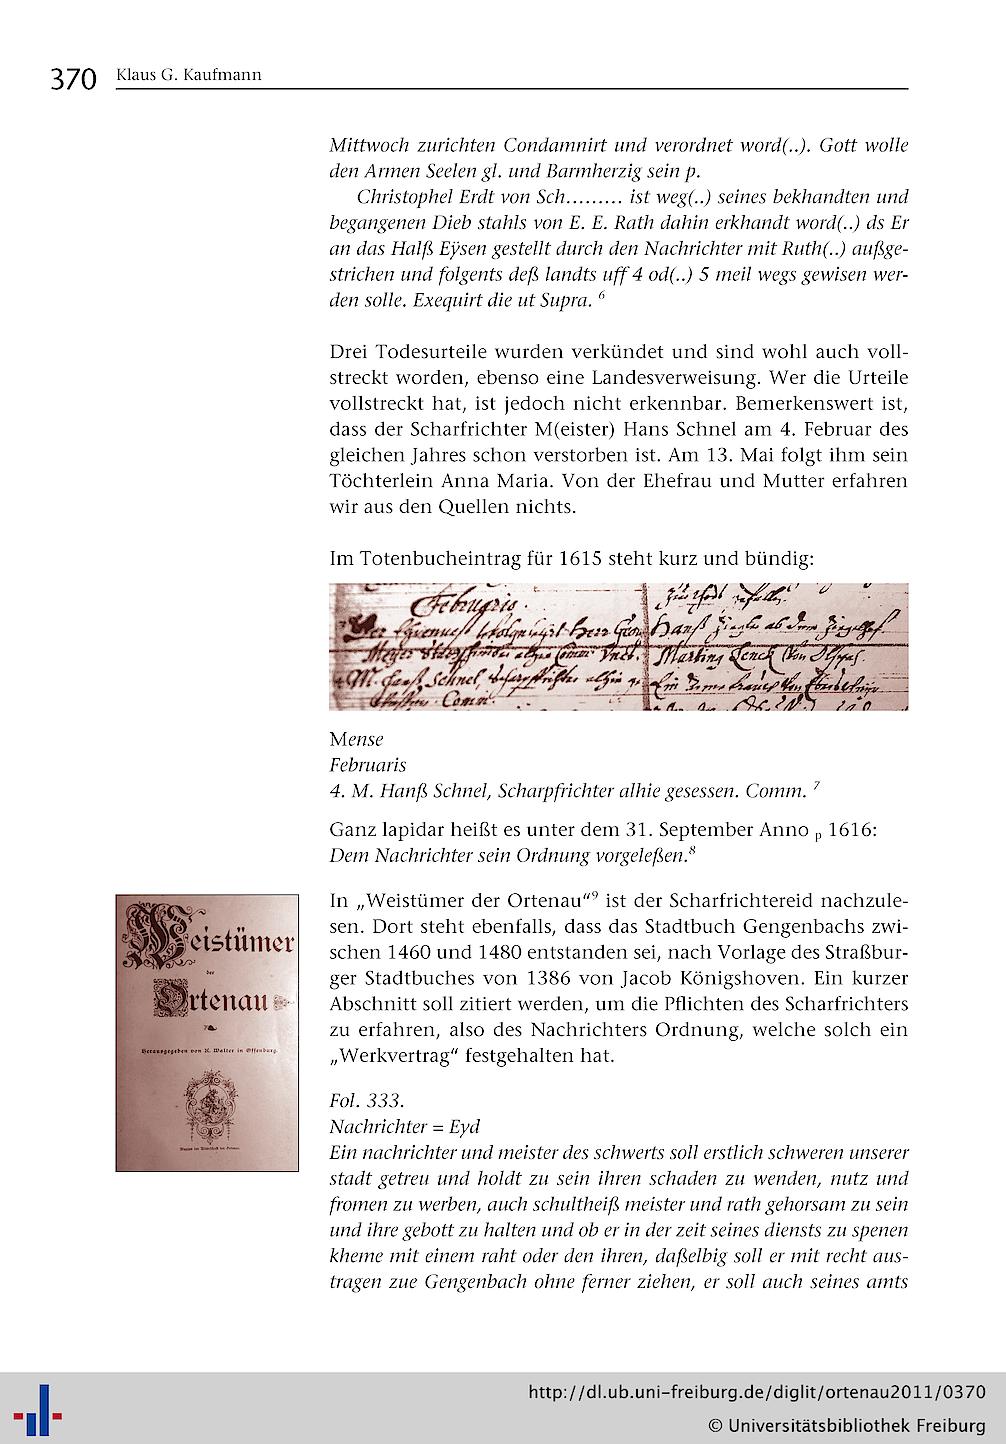 370 Klaus G. Kaufmann
Mittwoch zurichten Condamnirt und verordnet word(..). Gott wolle
den Armen Seelen gl. und Barmherzig sein p.
Christophel Erdt von Sch......... ist weg(..) seines bekhandten und
begangenen Dieb stahls von E. E. Rath dahin erkhandt word(..) ds Er
an das Halß Eÿsen gestellt durch den Nachrichter mit Ruth(..) außge-
strichen und folgents deß landts uff 4 od(..) 5 meil wegs gewisen wer-
den solle. Exequirt die ut Supra. 6
Drei Todesurteile wurden verkündet und sind wohl auch voll-
streckt worden, ebenso eine Landesverweisung. Wer die Urteile
vollstreckt hat, ist jedoch nicht erkennbar. Bemerkenswert ist,
dass der Scharfrichter M(eister) Hans Schnel am 4. Februar des
gleichen Jahres schon verstorben ist. Am 13. Mai folgt ihm sein
Töchterlein Anna Maria. Von der Ehefrau und Mutter erfahren
wir aus den Quellen nichts.
Im Totenbucheintrag für 1615 steht kurz und bündig:
Februaris.
M. Hanß Schnel
Comm.
Hanß Ziegler ab dem Ziegelhof
Martinus
Mense
Februaris
4. M. Hanß Schnel, Scharpfrichter alhie gesessen. Comm. 7
Ganz lapidar heißt es unter dem 31. September Anno p 1616:
Dem Nachrichter sein Ordnung vorgeleßen.8
Weistümer
der
Ortenau
Herausgegeben von K. Walter in Offenburg.
In „Weistümer der Ortenau“9 ist der Scharfrichtereid nachzule-
sen. Dort steht ebenfalls, dass das Stadtbuch Gengenbachs zwi-
schen 1460 und 1480 entstanden sei, nach Vorlage des Straßbur-
ger Stadtbuches von 1386 von Jacob Königshoven. Ein kurzer
Abschnitt soll zitiert werden, um die Pflichten des Scharfrichters
zu erfahren, also des Nachrichters Ordnung, welche solch ein
„Werkvertrag“ festgehalten hat.
Fol. 333.
Nachrichter = Eyd
Ein nachrichter und meister des schwerts soll erstlich schweren unserer
stadt getreu und holdt zu sein ihren schaden zu wenden, nutz und
fromen zu werben, auch schultheiß meister und rath gehorsam zu sein
und ihre gebott zu halten und ob er in der zeit seines diensts zu spenen
kheme mit einem raht oder den ihren, daßelbig soll er mit recht aus-
tragen zue Gengenbach ohne ferner ziehen, er soll auch seines amts
http://dl.ub.uni-freiburg.de/diglit/ortenau2011/0370
© Universitätsbibliothek Freiburg